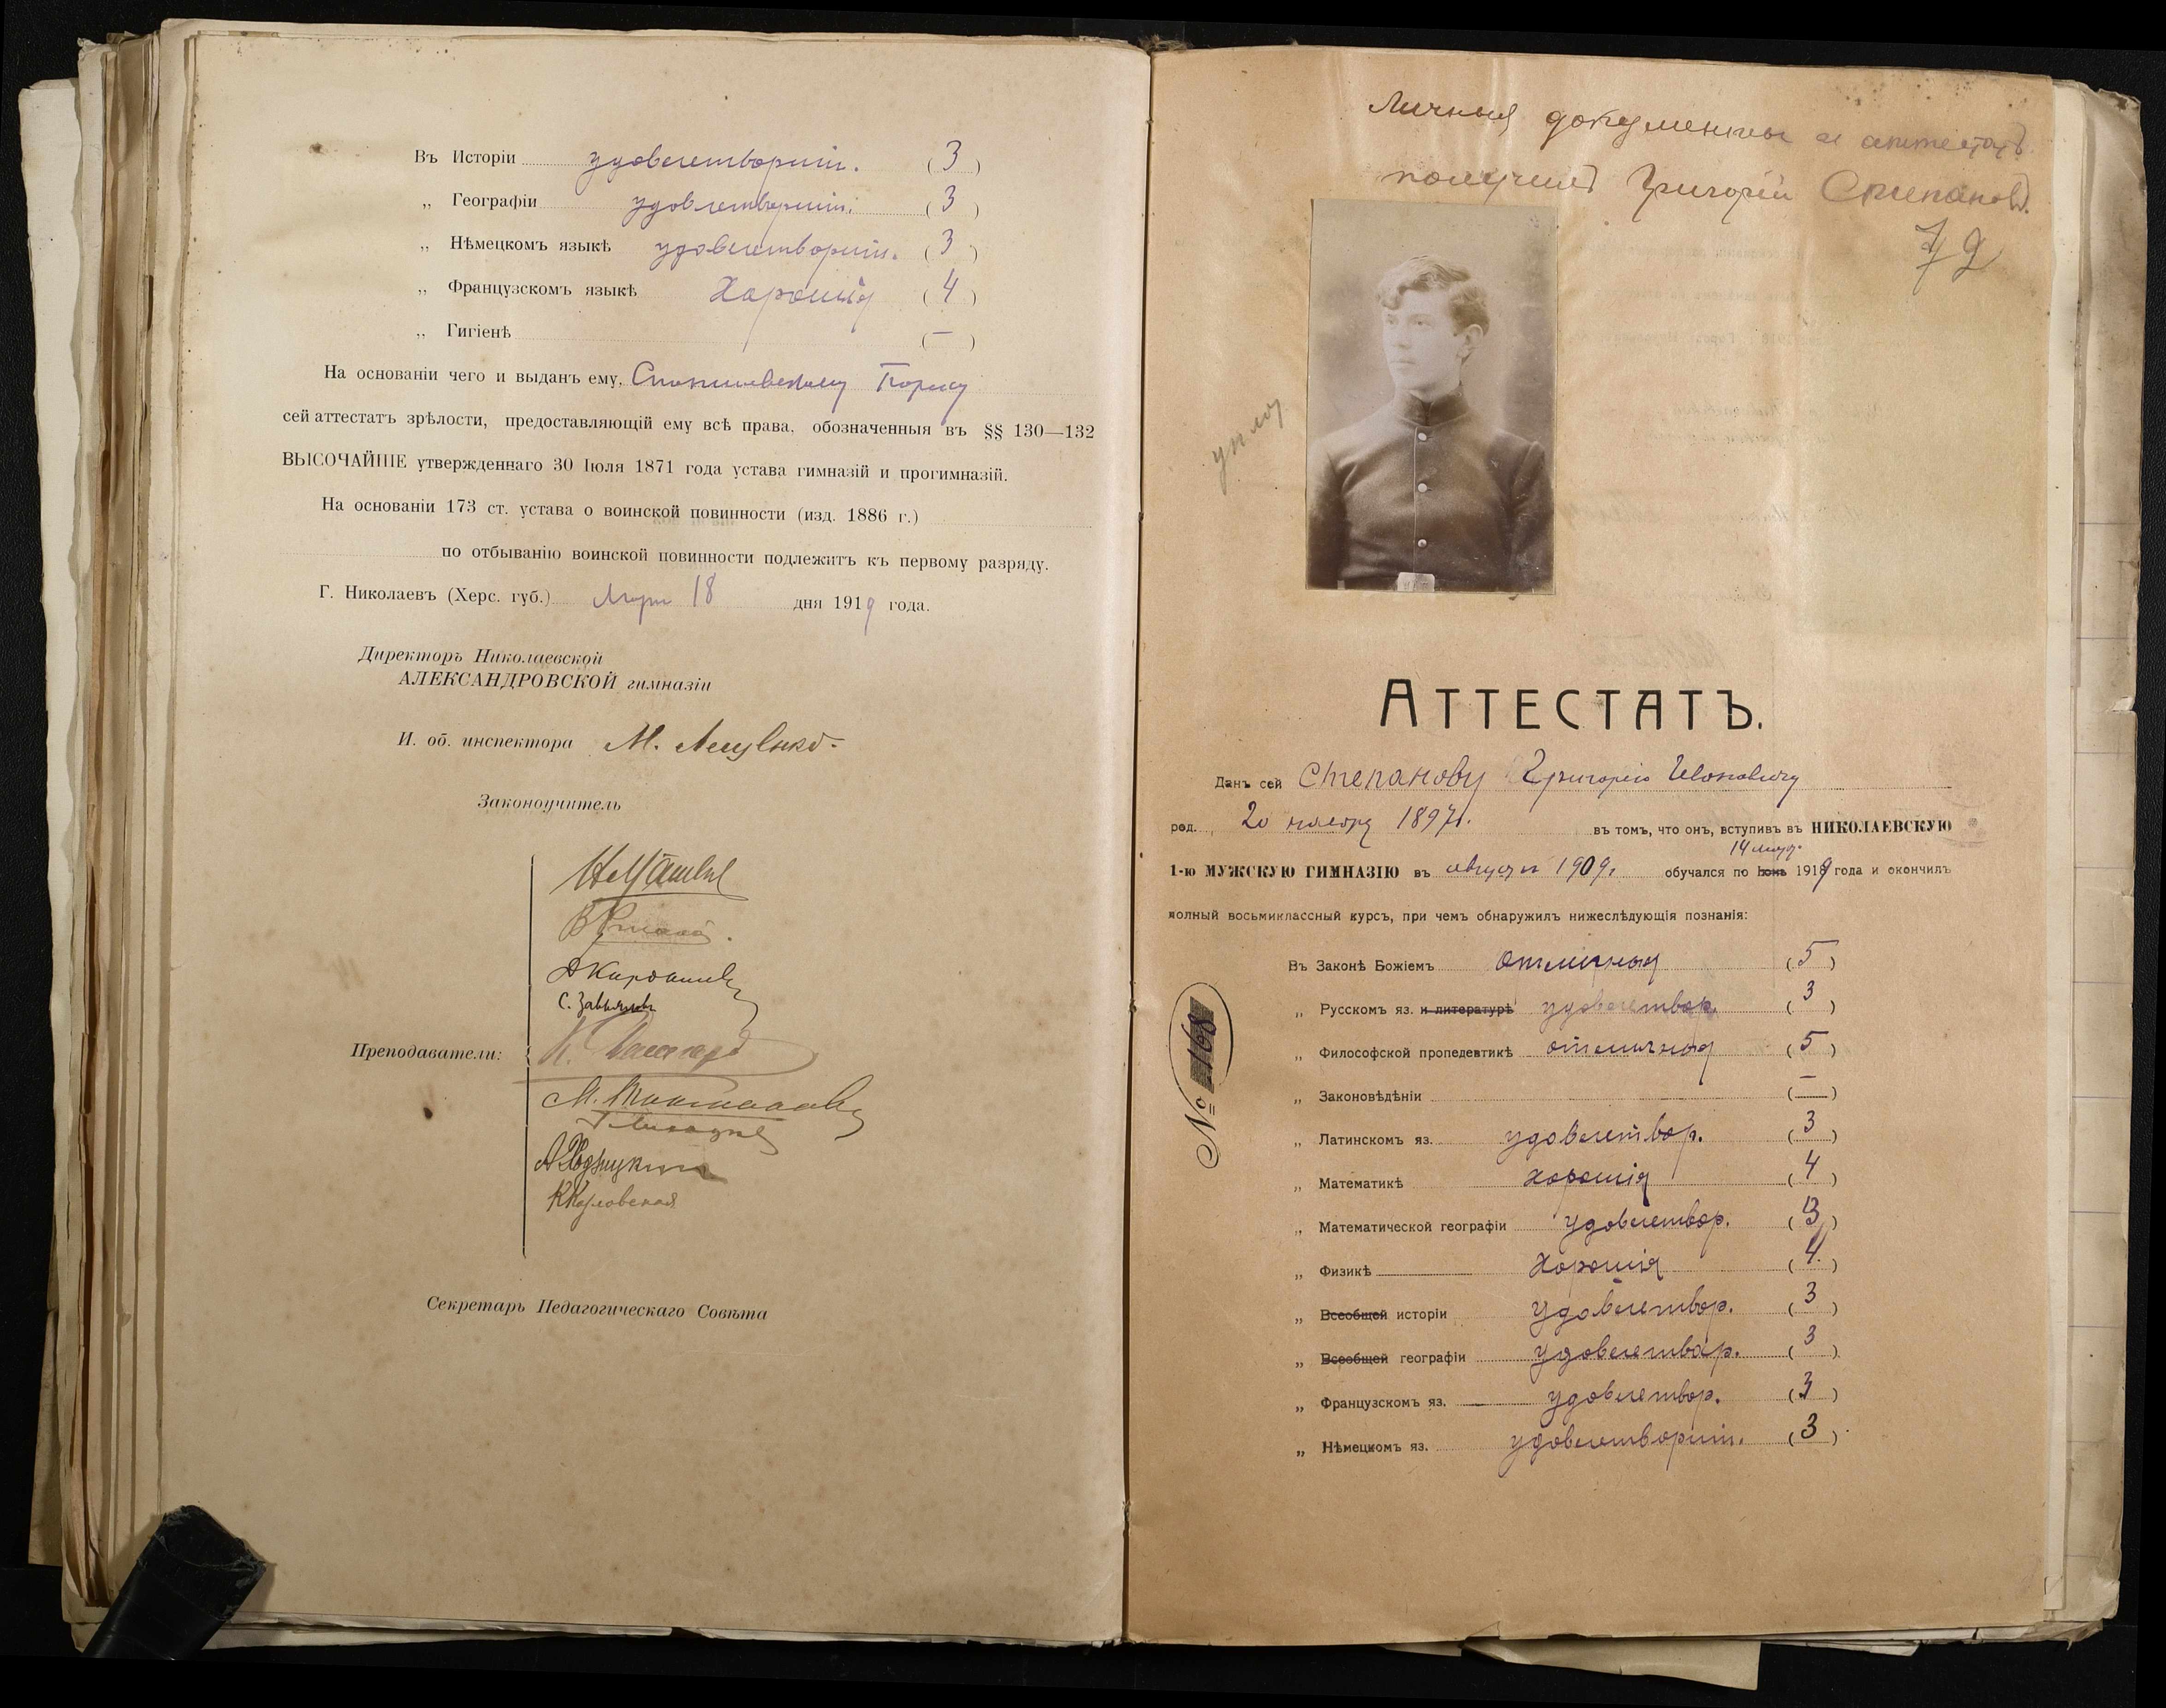 Въ Исторіи удовлетворит. (3)
„ Географіи удовлетворит. (3)
„ Нѣмецкомъ языкѣ удовлетворит. (3)
„ Французскомъ языкѣ Хорошія (4)
„ Гигіенѣ (—)
На основаніи чего и выданъ ему,
сей аттестатъ зрѣлости, предоставляющій ему всѣ права, обозначенныя въ §§ 130—132
ВЫСОЧАЙШЕ утвержденнаго 30 Іюля 1871 года устава гимназій и прогимназій.
На основаніи 173 ст. устава о воинской повинности (изд. 1886 г.)
по отбыванію воинской повинности подлежитъ къ первому разряду.
Г. Николаевъ (Херс. губ.) 18 дня 1919 года.
Директоръ Николаевской
АЛЕКСАНДРОВСКОЙ гимназіи
И. об. инспектора М.
Законоучитель
С. Завьялов
Преподаватели:
Секретарь Педагогическаго Совѣта
Личныя документы и аттестатъ
получилъ Григорій Степановъ.
72
АТТЕСТАТЪ.
Данъ сей Степанову Григорію Ивановичу
род. 20 ноября 1897г. въ томъ, что онъ, вступив въ НИКОЛАЕВСКУЮ
14 мар.
1-ю МУЖСКУЮ ГИМНАЗІЮ въ августѣ 1909г. обучался по Іюнь 1919 года и окончилъ
полный восьмиклассный курсъ, при чемъ обнаружилъ нижеслѣдующія познанія:
Въ Законѣ Божіемъ отличныя (5)
„ Русскомъ яз. и литературѣ удовлетвор. (3)
„ Философской пропедевтикѣ отличныя (5)
„ Законовѣдѣніи (—)
„ Латинскомъ яз. удовлетвор. (3)
„ Математикѣ хорошія (4)
„ Математической географіи удовлетвор. (3)
„ Физикѣ Хорошія (4)
„ Всеобщей исторіи удовлетвор. (3)
„ Всеобщей географіи удовлетвор. (3)
„ Французскомъ яз. удовлетвор. (3)
„ Нѣмецкомъ яз. удовлетворит. (3)
№ 168